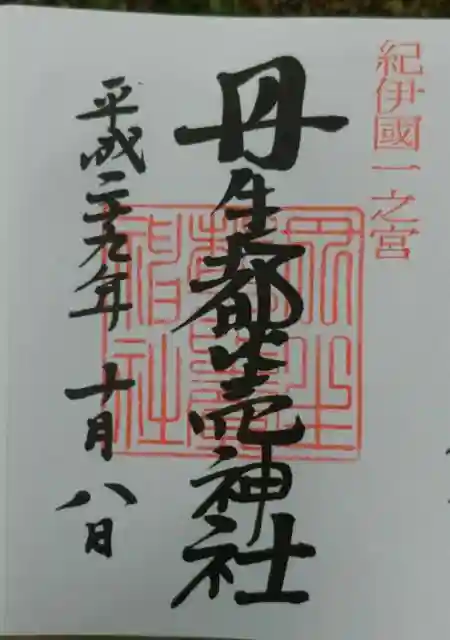 紀伊國一之宮
丹生都比売神社
平成二十九年 十月 八日